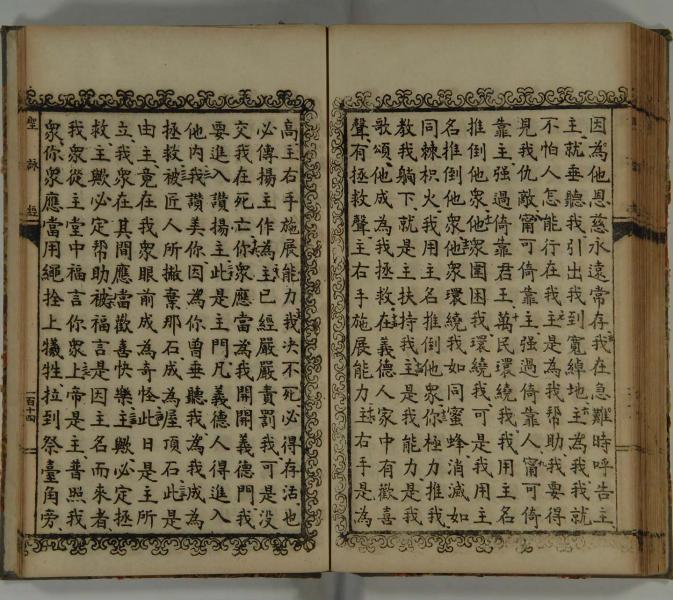 因為他恩慈永遠常存我在急難時呼告主
主就垂聽我引出我到寬綽地主為我我就
不怕人怎能行在我主是為我幫助我要得
見我仇敵甯可倚靠主強過倚靠人甯可倚
靠主強過倚靠君王萬民環繞我我用主名
推倒他眾他眾圍困我環繞我可是我用主
名推倒他眾他眾環繞我如同蜜蜂消滅如
同棘枳火我用主名推倒他眾你極力推我
教我躺下就是主扶持我主是我能力是我
歌頌他成為我拯救在義德人家中有歡喜
聲有拯救聲主右手施展能力主右手是為
高主右手施展能力我决不死必得存活也
必傳揚主作為主已經嚴嚴責罰我可是没
交我在死亡你眾應當為我開開義德門我
要進入讚揚主此是主門凡義德人得進入
他內我讚美你因為你曾垂聽我為我成為
拯救被匠人所撇棄那石成為屋頂石此是
由主竟在我眾眼前成為奇怪此日是主所
立我眾在其間應當歡喜快樂主歟必定拯
救主歟必定幫助被福言是因主名而來者
我眾從主堂中福言你眾上帝是主普照我
眾你眾應當用繩拴上犧牲拉到祭臺角旁
聖詠經
一百十四